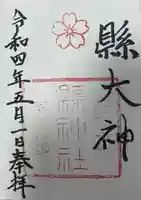 縣大神
縣神社
令和四年五月一日奉拝